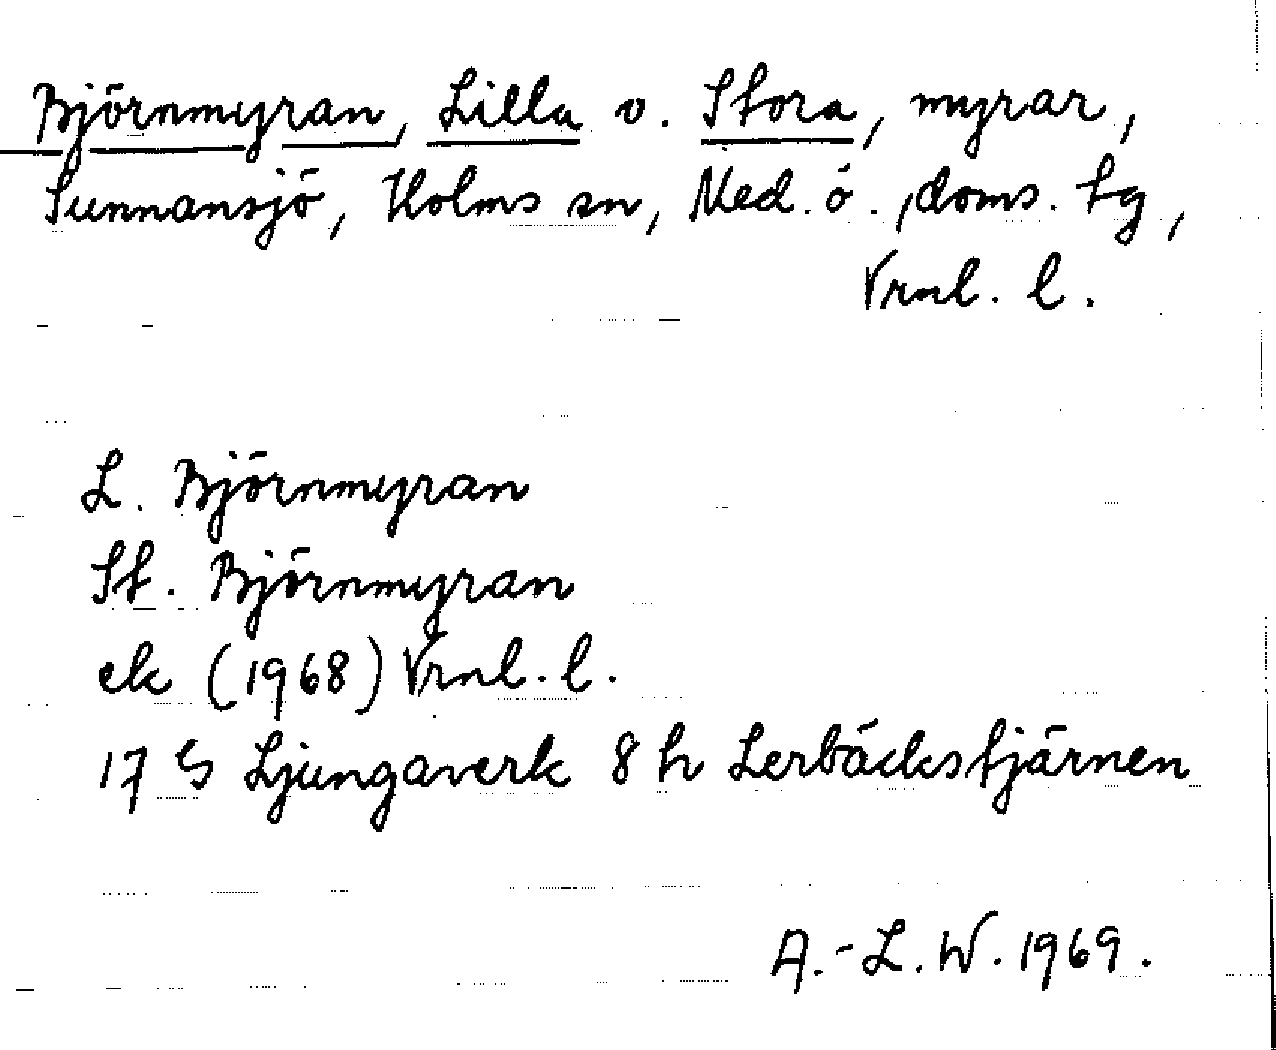 Björnmyran, Lilla o. Stora, myrar,
Sunnansjö, Holms sn, Med. ö. doms. tg,
Vrnl. l.
L. Björnmyran
St. Björnmyran
ek (1968) Vrnl. l.
17 G Ljungaverk 8 h Lerbäckstjärnen
A.-L. W. 1969.